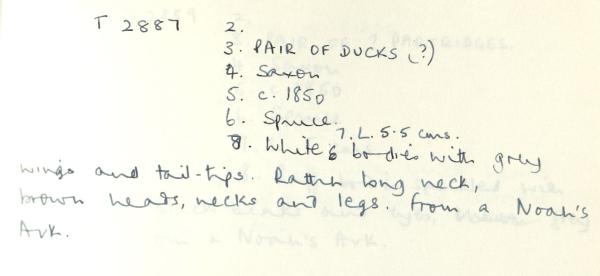 T 2887 2.
3. PAIR OF DUCKS (?)
4. Saxon
5. c. 1850
6. Spruce.
7. L. 5.5 cms.
8. White bodies with grey
wings and tail-tips. Rather long neck,
brown heads, necks and legs. From a Noah's
Ark.